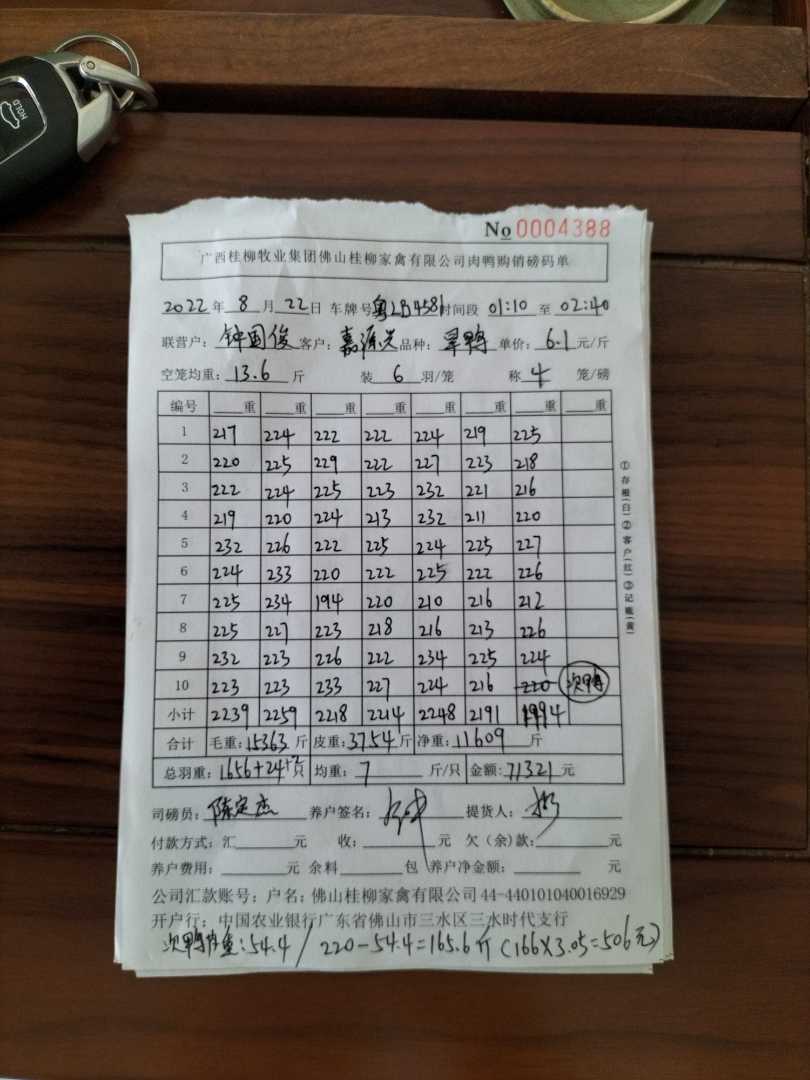 HOLD
No 0004388
广西桂柳牧业集团佛山桂柳家禽有限公司肉鸭购销磅码单
2022年 8 月 22日 车牌号粤LB4581时间段 01:10 至 02:40
联营户：钟国俊 客户：嘉源光 品种： 单价：6.1元/斤
空笼均重：13.6 斤 装 6 羽/笼 称 4 笼/磅
编号 重 重 重 重 重 重 重 重
1 217 224 222 222 224 219 225
2 220 225 229 222 227 223 218
3 222 224 225 223 232 221 216
4 219 220 224 213 232 211 220
5 232 226 222 225 224 225 227
6 224 233 220 222 225 222 226
7 225 234 194 220 210 216 212
8 225 227 223 218 216 213 226
9 232 223 226 222 234 225 224
10 223 223 233 227 224 216 220 次鸭
小计 2239 2259 2218 2214 2248 2191 1994
合计 毛重：15363 斤 皮重：3754 斤 净重：11609 斤
总羽重：1656+24+2只 均重：7 斤/只 金额：71321 元
司磅员：陈定杰 养户签名： 提货人：
付款方式：汇 元 收： 元 欠（余）款： 元
养户费用： 元 余料 包 养户净金额： 元
公司汇款账号：户名：佛山桂柳家禽有限公司 44-440101040016929
开户行：中国农业银行广东省佛山市三水区三水时代支行
次鸭皮重：54.4 / 220-54.4=165.6斤（166×3.05=506元）
①存根(白)②客户(红)③记账(黄)